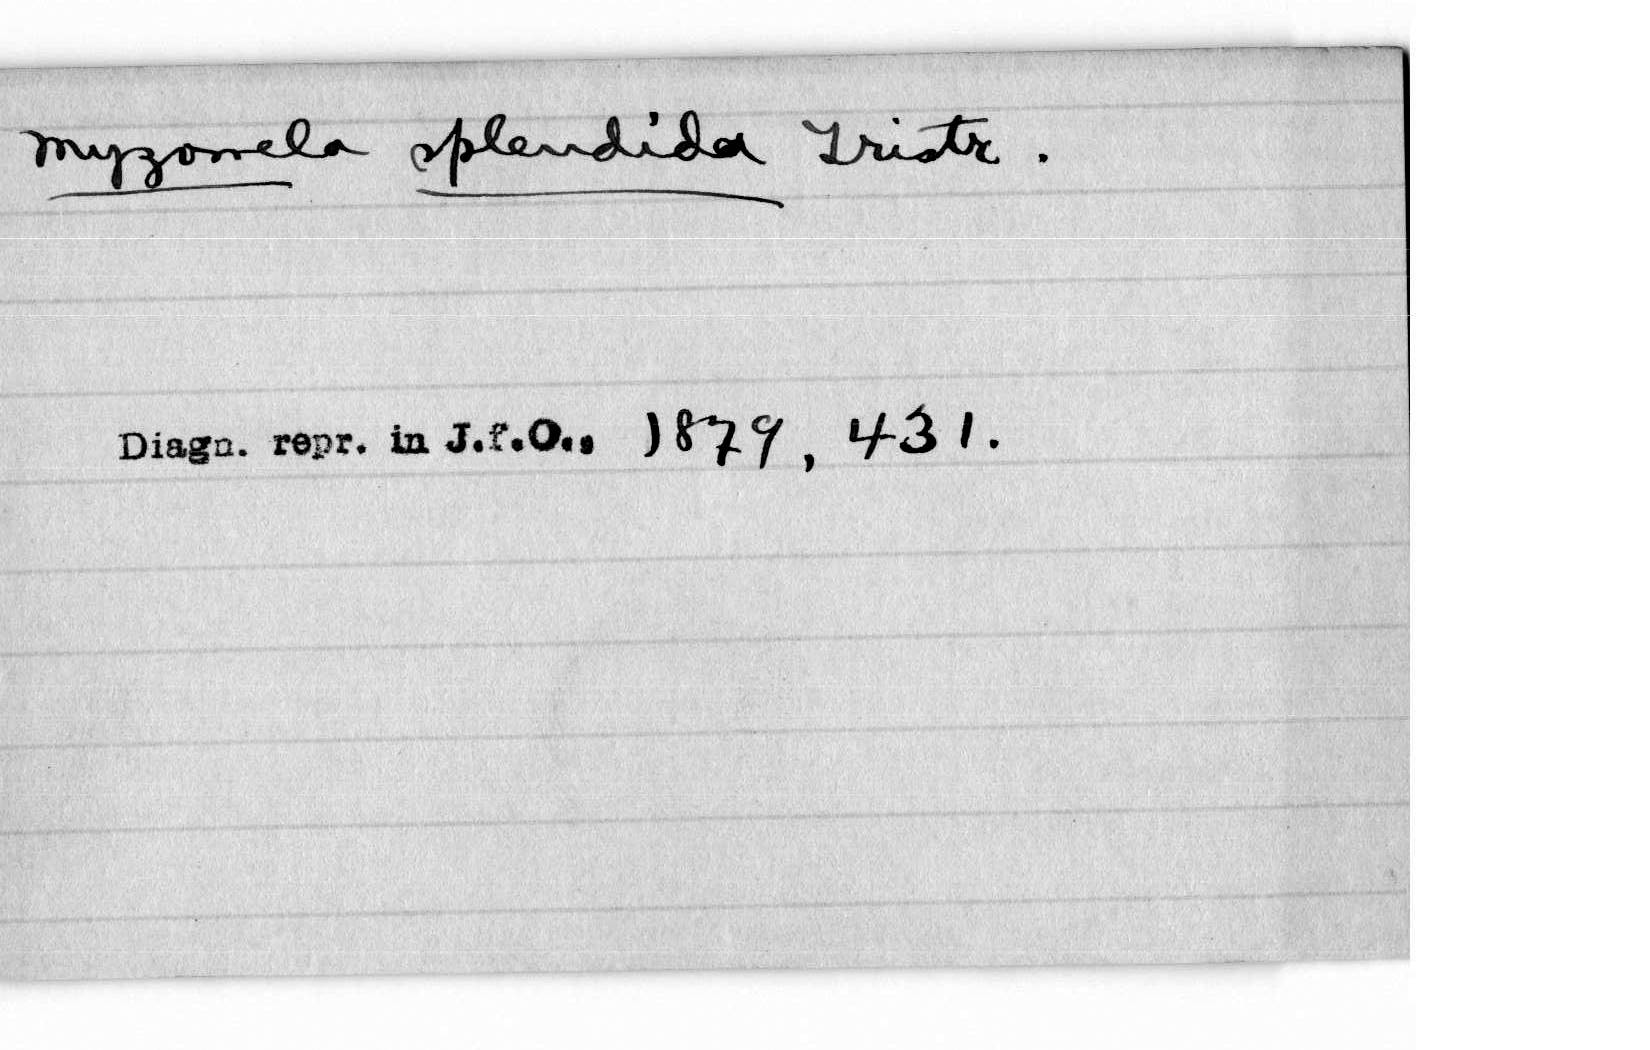 Myzomela splendida Tristr.
Diagn. repr. in J.f.O., 1879, 431.